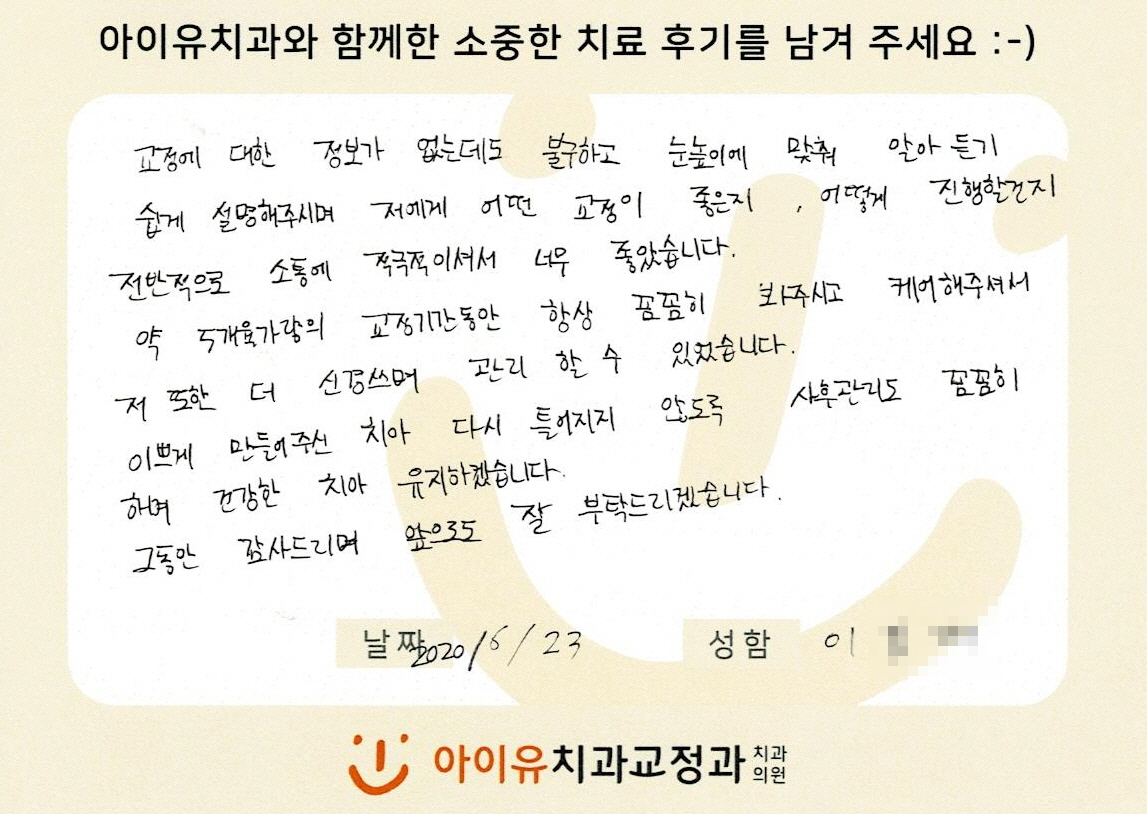 아이유치과와 함께한 소중한 치료 후기를 남겨 주세요 :-)
교정에 대한 정보가 없는데도 불구하고 눈높이에 맞춰 알아 듣기
쉽게 설명해주시며 저에게 어떤 교정이 좋은지 , 어떻게 진행할건지
전반적으로 소통에 적극적이셔서 너무 좋았습니다.
약 5개월가량의 교정기간동안 항상 꼼꼼히 봐주시고 케어해주셔서
저 또한 더 신경쓰며 관리 할 수 있었습니다.
이쁘게 만들어주신 치아 다시 틀어지지 않도록 사후관리도 꼼꼼히
하며 건강한 치아 유지하겠습니다.
그동안 감사드리며 앞으로도 잘 부탁드리겠습니다.
날짜 2020/6/23 성함 이
아이유치과교정과 치과의원